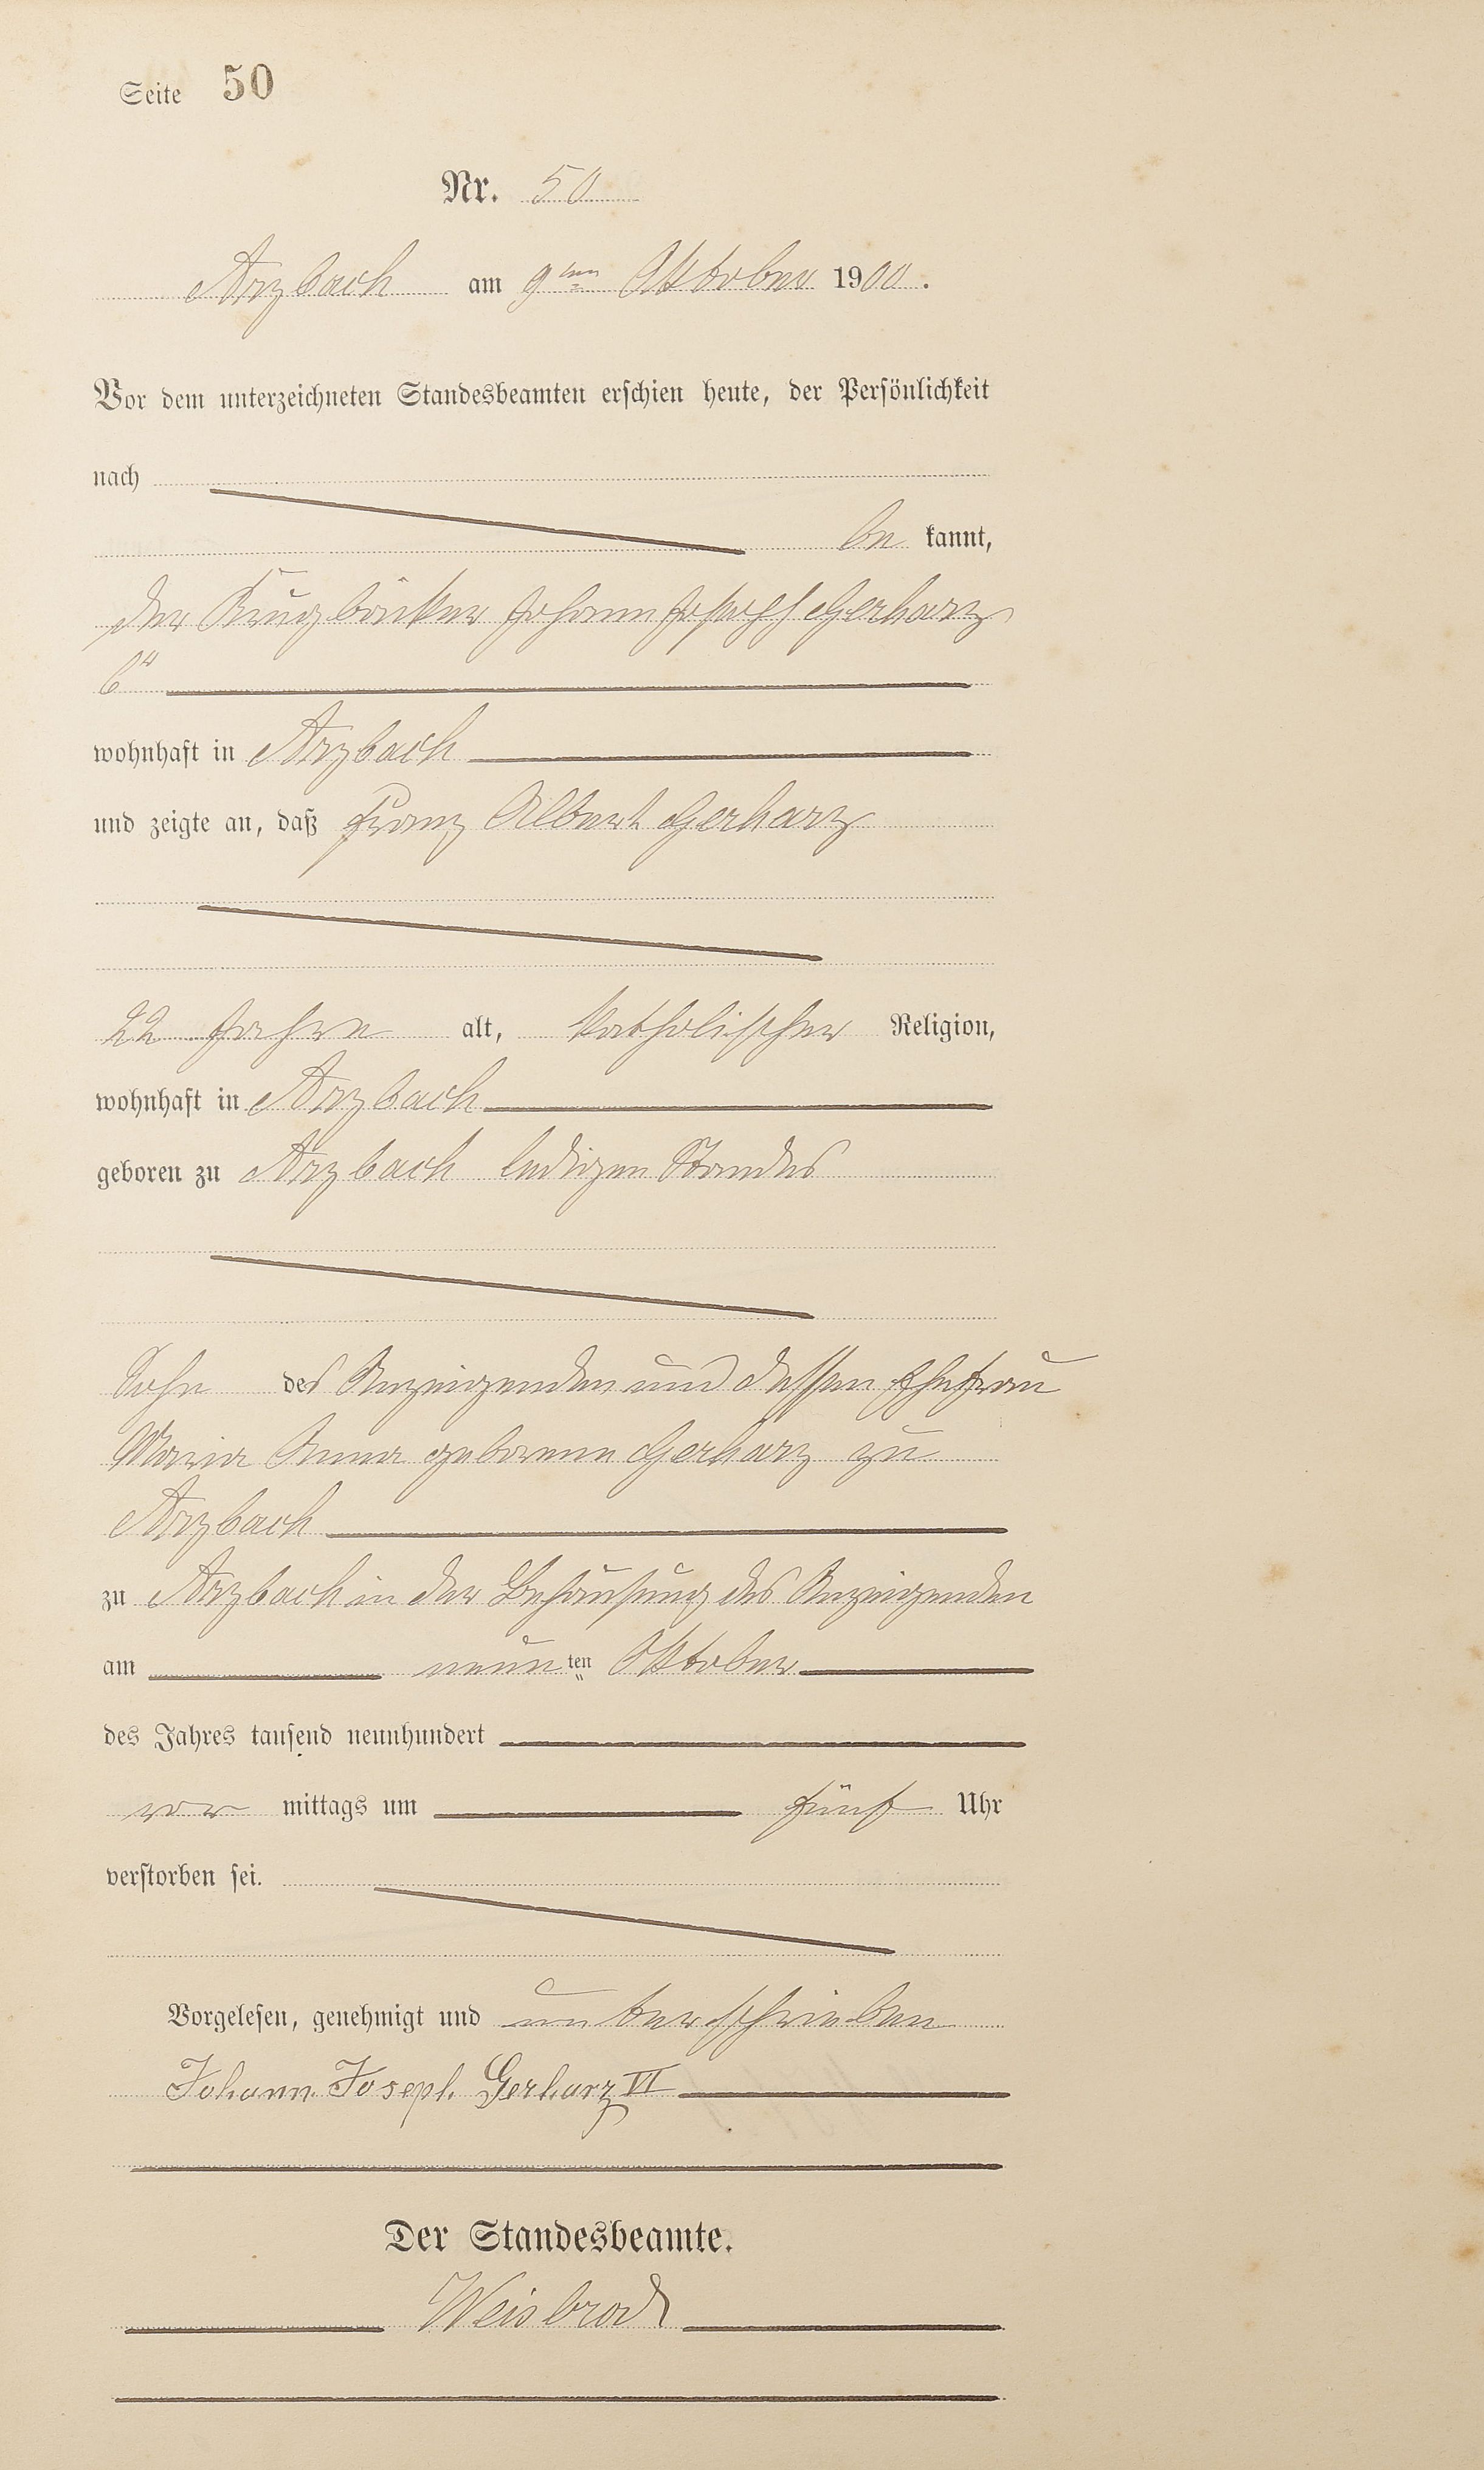 Seite 50
Nr. 50
Arzbach am 9ten Oktober 1900.
Vor dem unterzeichneten Standesbeamten erschien heute, der Persönlichkeit
nach
be kannt,
der Krugbäcker Johann Joseph Gerharz
6ter
wohnhaft in Arzbach
und zeigte an, daß Franz Albert Gerharz
22 Jahre alt, katholischer Religion,
wohnhaft in Arzbach
geboren zu Arzbach ledigen Standes
Sohn des Anzeigenden und dessen Ehefrau
Maria Anna geborene Gerharz zu
Arzbach
zu Arzbach in der Behausung des Anzeigenden
am neunten Oktober
des Jahres tausend neunhundert
vor mittags um fünf Uhr
verstorben sei.
Vorgelesen, genehmigt und unterschrieben
Johann Joseph Gerharz VI
Der Standesbeamte.
Weisbrod